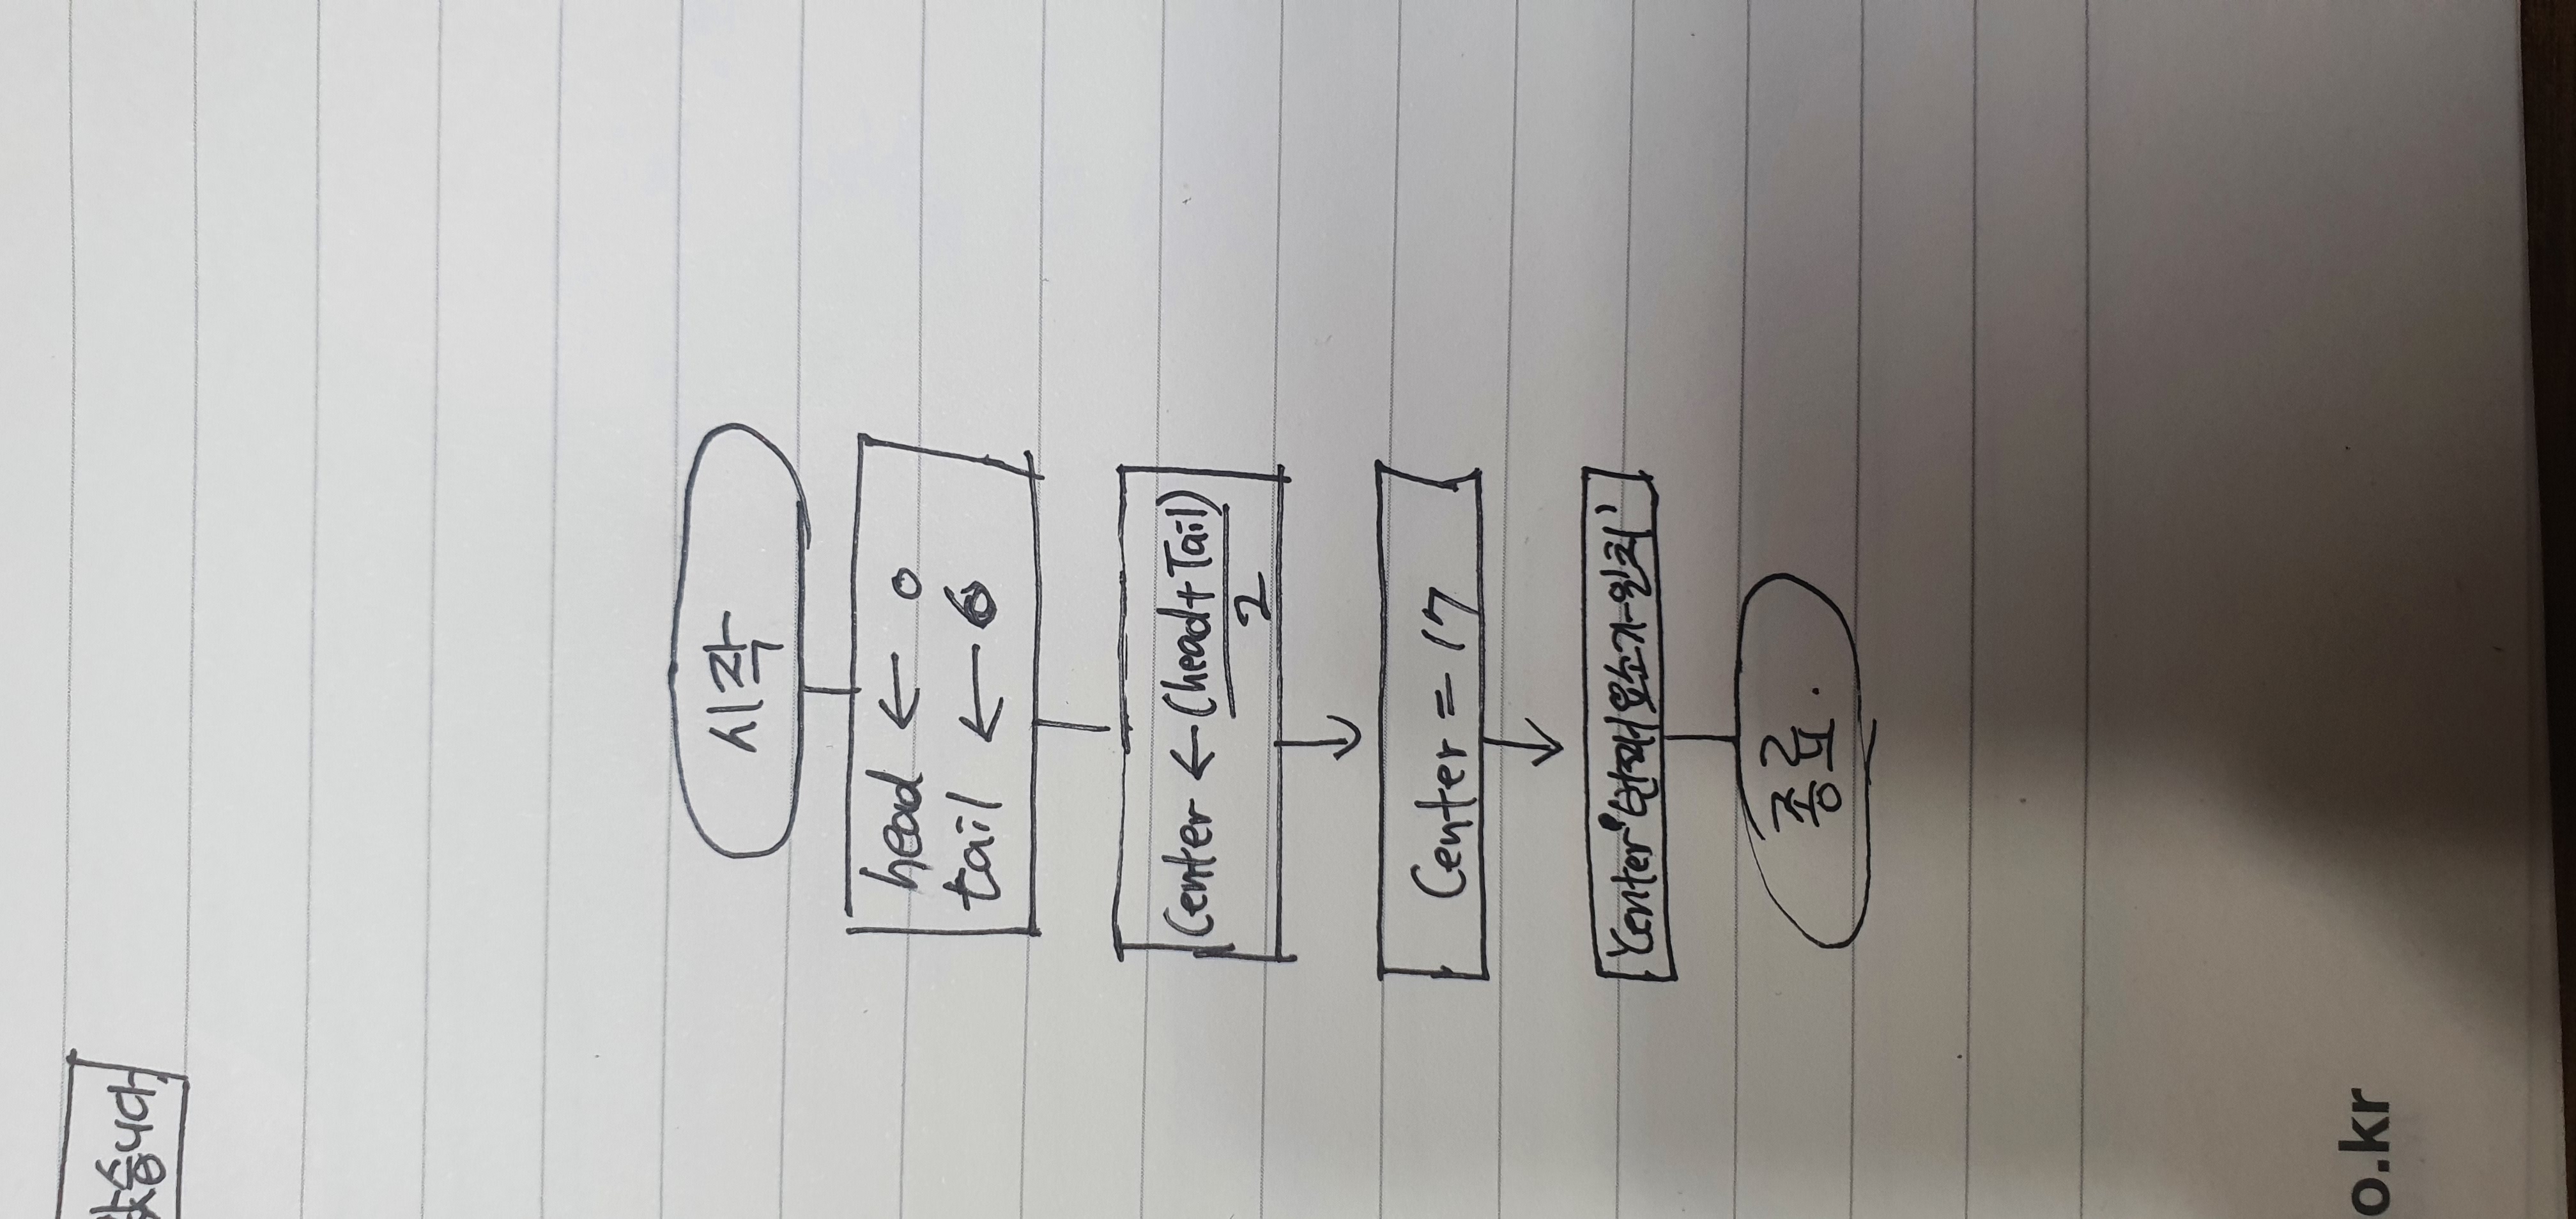 습니다
시작
head ← 0
tail ← 6
Center ← (head + Tail)
2
Center = 17
'Center' 번째 요소가 일치'
종료.
o.kr